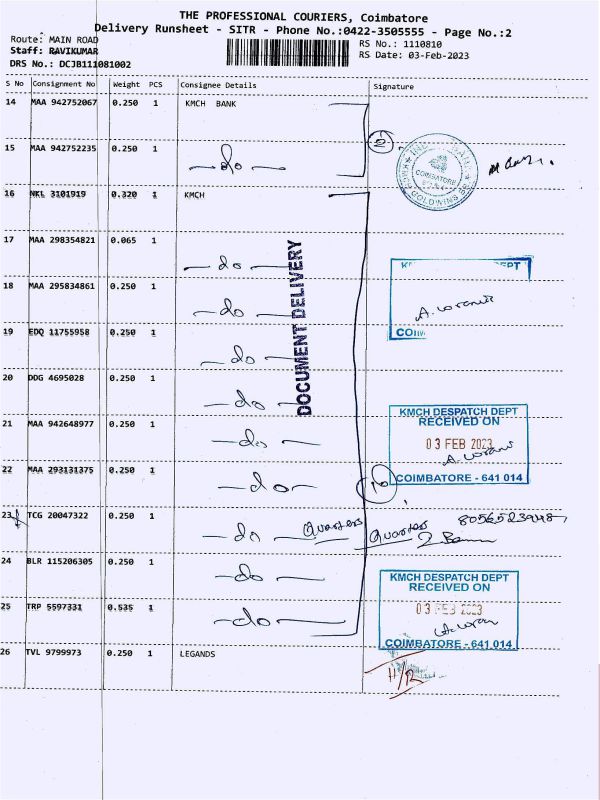 THE PROFESSIONAL COURIERS, Coimbatore
Delivery Runsheet - SITR - Phone No.:0422-3505555 - Page No.:2
Route: MAIN ROAD RS No.: 1110810
Staff: RAVIKUMAR RS Date: 03-Feb-2023
DRS No.: DCJB111081002
S No Consignment No Weight PCS Consignee Details Signature
14 MAA 942752067 0.250 1 KMCH BANK
15 MAA 942752235 0.250 1 -do-
COIMBATORE
16 NKL 3101919 0.320 1 KMCH
17 MAA 298354821 0.065 1 -do-
18 MAA 295834861 0.250 1 -do-
DOCUMENT DELIVERY
19 EDQ 11755958 0.250 1 -do-
20 DDG 4695028 0.250 1 -do-
KMCH DESPATCH DEPT
RECEIVED ON
03 FEB 2023
COIMBATORE - 641 014
21 MAA 942648977 0.250 1 -do-
22 MAA 293131375 0.250 1 -do-
23 TCG 20047322 0.250 1 -do- Quarters Quarters
24 BLR 115206305 0.250 1 -do-
KMCH DESPATCH DEPT
RECEIVED ON
03 FEB 2023
COIMBATORE - 641 014
25 TRP 5597331 0.535 1 -do-
26 TVL 9799973 0.250 1 LEGANDS
11/12